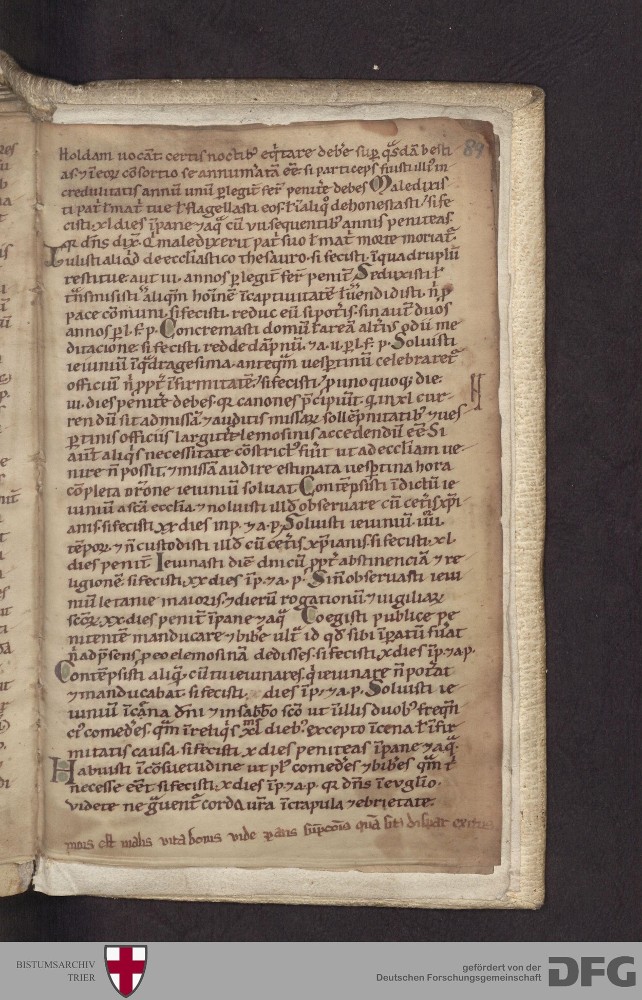 holdam uocāt: certis noctibꝰ eq̇tare debe sup q̇sdā besti
as. ⁊ ī eoꝝ cōsortio se annumatā eē. si particeps fuisti illiꝰ in
credulitatis annū unū p legit fer penite debes Maledixis
ti pat l mat tue l flagellasti eos. l ī aliq̊ dehonestasti / si fe
cisti. xl dies ī pane ⁊ aq̄ cū vii sequentibꝰ annis peniteas.
qꝛ dn̄s dix̄. Q̇ maledixerit pat suo l mat morte moriat
Tulisti aliq̇d de eccl̄iastico thesauro. si fecisti. ī quadruplū
restitue. aut iii annos p legit fer penit. Seduxisti l
tn̄smisisti aliq̄m hoīnē ī captiuitatē l uendidisti. n̄ p
pace cōmuni. si fecisti. reduc eū si potis. sin aut duos
annos p l. f. p. Concremasti domū l areā altiꝰ ꝑ odiū me
ditacione. si fecisti redde dāpnū. ⁊ a. ii. p l. f. p. Soluisti
ieiuniū ī q̇dragesima. anteq̄m uesptinū celebraret
officiū n̄ ppt ī firmitatē / si fecisti. / p uno quoq; die.
iii. dies penite debes. qꝛ canones p̄cipiūt. q̇ in xl cur
rendū sit ad missā. ⁊ auditis missaꝝ sollēpnitatibꝰ ⁊ ues
ptinis officiis largit elemosinis accedendū eē. Si
aut aliqs necessitate cōstrictꝰ fuit ut ad eccl̄iam ue
nire n̄ possit. ⁊ missā audire estimata uesptina hora
cōpleta or̄one ieiuniū soluat. Contēpsisti īdictū ie
iuniū a scā eccl̄ia. ⁊ noluisti illd̄ obseruare cū cetis xp̄i
anis. si fecisti. xx dies in p. ⁊ a. p. Soluisti ieiuniū. iiii.
tēpoꝝ. ⁊ n̄ custodisti illd̄ cū cetis xp̄ianis. si fecisti. xl.
dies penit. Ieiunasti diē dn̄icū ppt abstinenciā ⁊ re
ligionē. si fecisti. xx dies ī p. ⁊ a. p. Si n̄ obseruasti ieiu
niū letanie maioris. ⁊ dierū rogationū. ⁊ uigiliaꝝ
scōꝝ. xx. dies penit ī pane ⁊ aq̄. Coegisti publice pe
nitentē manducare ⁊ bibe ult id qd̄ sibi īpatū fuat
n̄ ad p̄sens. p eo elemosinā dedisses. si fecisti. x dies ī p. ⁊ a p.
Contēpsisti aliq̄. cū tu ieiunares. q̇ ieiunare n̄ potat
⁊ manducabat. si fecisti. dies ī p. ⁊ a. p. Soluisti ie
iuniū ī cāna dn̄i ⁊ in sabbo scō ut ī illis duobꝰ freqn̄
ciꝰ comedes. q̄m ī reliq̇s xl diebꝰ. excepto ī cena l ī fir
mitatis causa. si fecisti. x dies peniteas ī pane ⁊ aq̄.
Habuisti ī cōsuetudine ut plꝰ comedes ⁊ bibes q̄m t
necesse eēt. si fecisti. x dies ī p. ⁊ a. p. qꝛ dn̄s ī euglio.
videte ne g̊uent corda ur̄a ī crapula ⁊ ebrietate.
mors est malis vita bonis vide paris sūpcōis quā sit dispar exitus
89
BISTUMSARCHIV
TRIER
gefördert von der
Deutschen Forschungsgemeinschaft
DFG